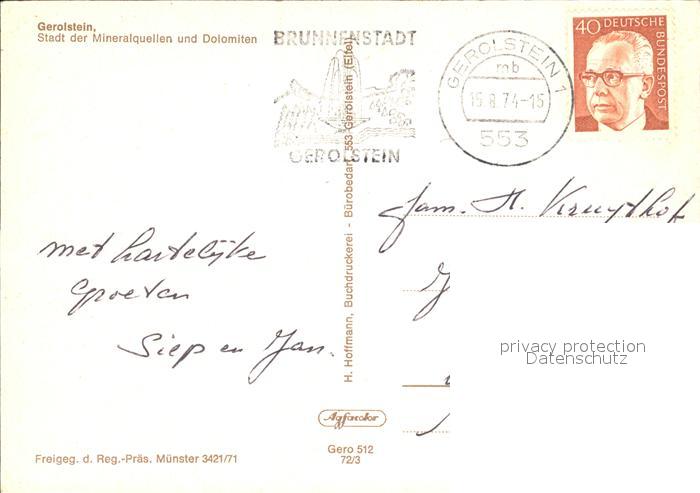 Gerolstein,
Stadt der Mineralquellen und Dolomiten
BRUNNENSTADT
GEROLSTEIN
GEROLSTEIN 1
mb
15.8.74-15
553
40 DEUTSCHE
BUNDESPOST
H. Hoffmann, Buchdruckerei - Bürobedarf, 553 Gerolstein (Eifel)
Fam. H. Kruythof
met hartelijke
groeten
Siep en Jan.
privacy protection
Datenschutz
Agfacolor
Gero 512
72/3
Freigeg. d. Reg.-Präs. Münster 3421/71